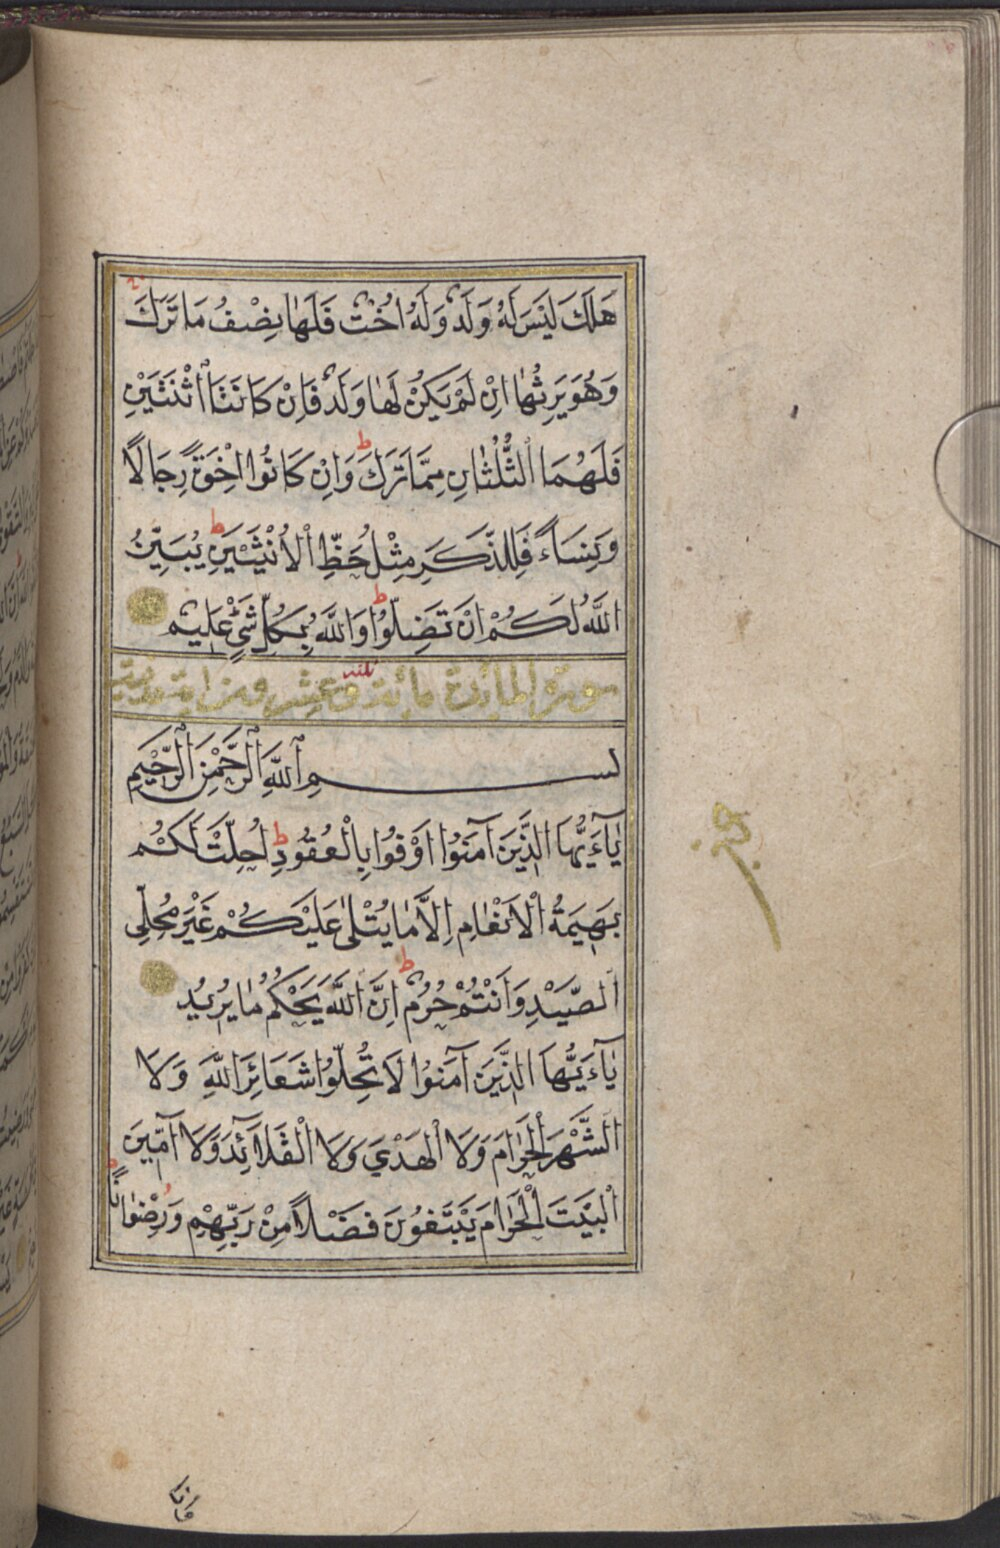 هَلَكَ لَيْسَ لَهُ وَلَدٌ وَلَهُ اُخْتٌ فَلَهَا نِصْفُ مَا تَرَكَ
وَهُوَ يَرِثُهَا اِنْ لَمْ يَكُنْ لَهَا وَلَدٌ فَاِنْ كَانَتَا اثْنَتَيْنِ
فَلَهُمَا الثُّلُثَانِ مِمَّا تَرَكَ ط وَاِنْ كَانُوا اِخْوَةً رِجَالًا
وَنِسَاءً فَلِلذَّكَرِ مِثْلُ حَظِّ الْاُنْثَيَيْنِ ط يُبَيِّنُ
اللَّهُ لَكُمْ اَنْ تَضِلُّوا ط وَاللَّهُ بِكُلِّ شَيْءٍ عَلِيمٌ
سورة المائدة مائة وعشرون اية مدنية
بِسْمِ اللَّهِ الرَّحْمٰنِ الرَّحِيمِ
يَآءَيُّهَا الَّذِينَ آمَنُوا اَوْفُوا بِالْعُقُودِ ط اُحِلَّتْ لَكُمْ
بَهِيمَةُ الْاَنْعَامِ اِلَّا مَا يُتْلٰى عَلَيْكُمْ غَيْرَ مُحِلِّى
الصَّيْدِ وَاَنْتُمْ حُرُمٌ ط اِنَّ اللَّهَ يَحْكُمُ مَا يُرِيدُ
يَآءَيُّهَا الَّذِينَ آمَنُوا لَا تُحِلُّوا شَعَائِرَ اللَّهِ وَلَا
الشَّهْرَ الْحَرَامَ وَلَا الْهَدْيَ وَلَا الْقَلَآئِدَ وَلَا آمِّينَ
الْبَيْتَ الْحَرَامَ يَبْتَغُونَ فَضْلًا مِنْ رَبِّهِمْ وَرِضْوَانًا